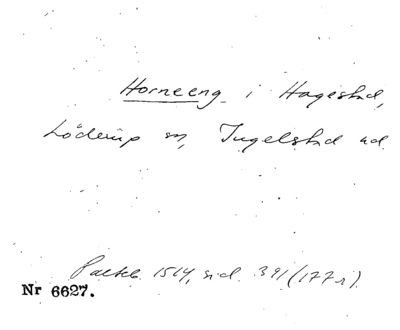 Horneeng i Hagestad,
Löderup sn, Ingelstad hd.
Palteb. 1514, sid. 391 (177 r).
Nr 6627.